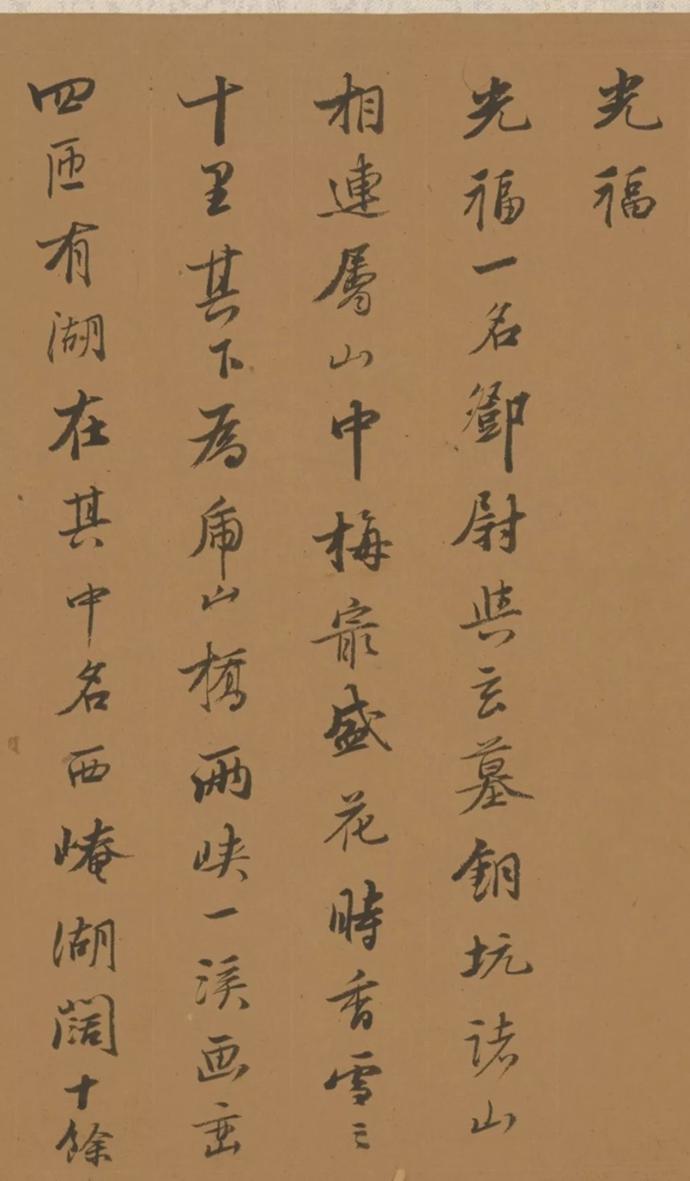 光福
光福一名鄧尉與玄墓銅坑諸山
相連屬山中梅㝡盛花時香雪三
十里其下為虎山橋兩峽一溪画峦
四匝有湖在其中名西崦湖闊十餘